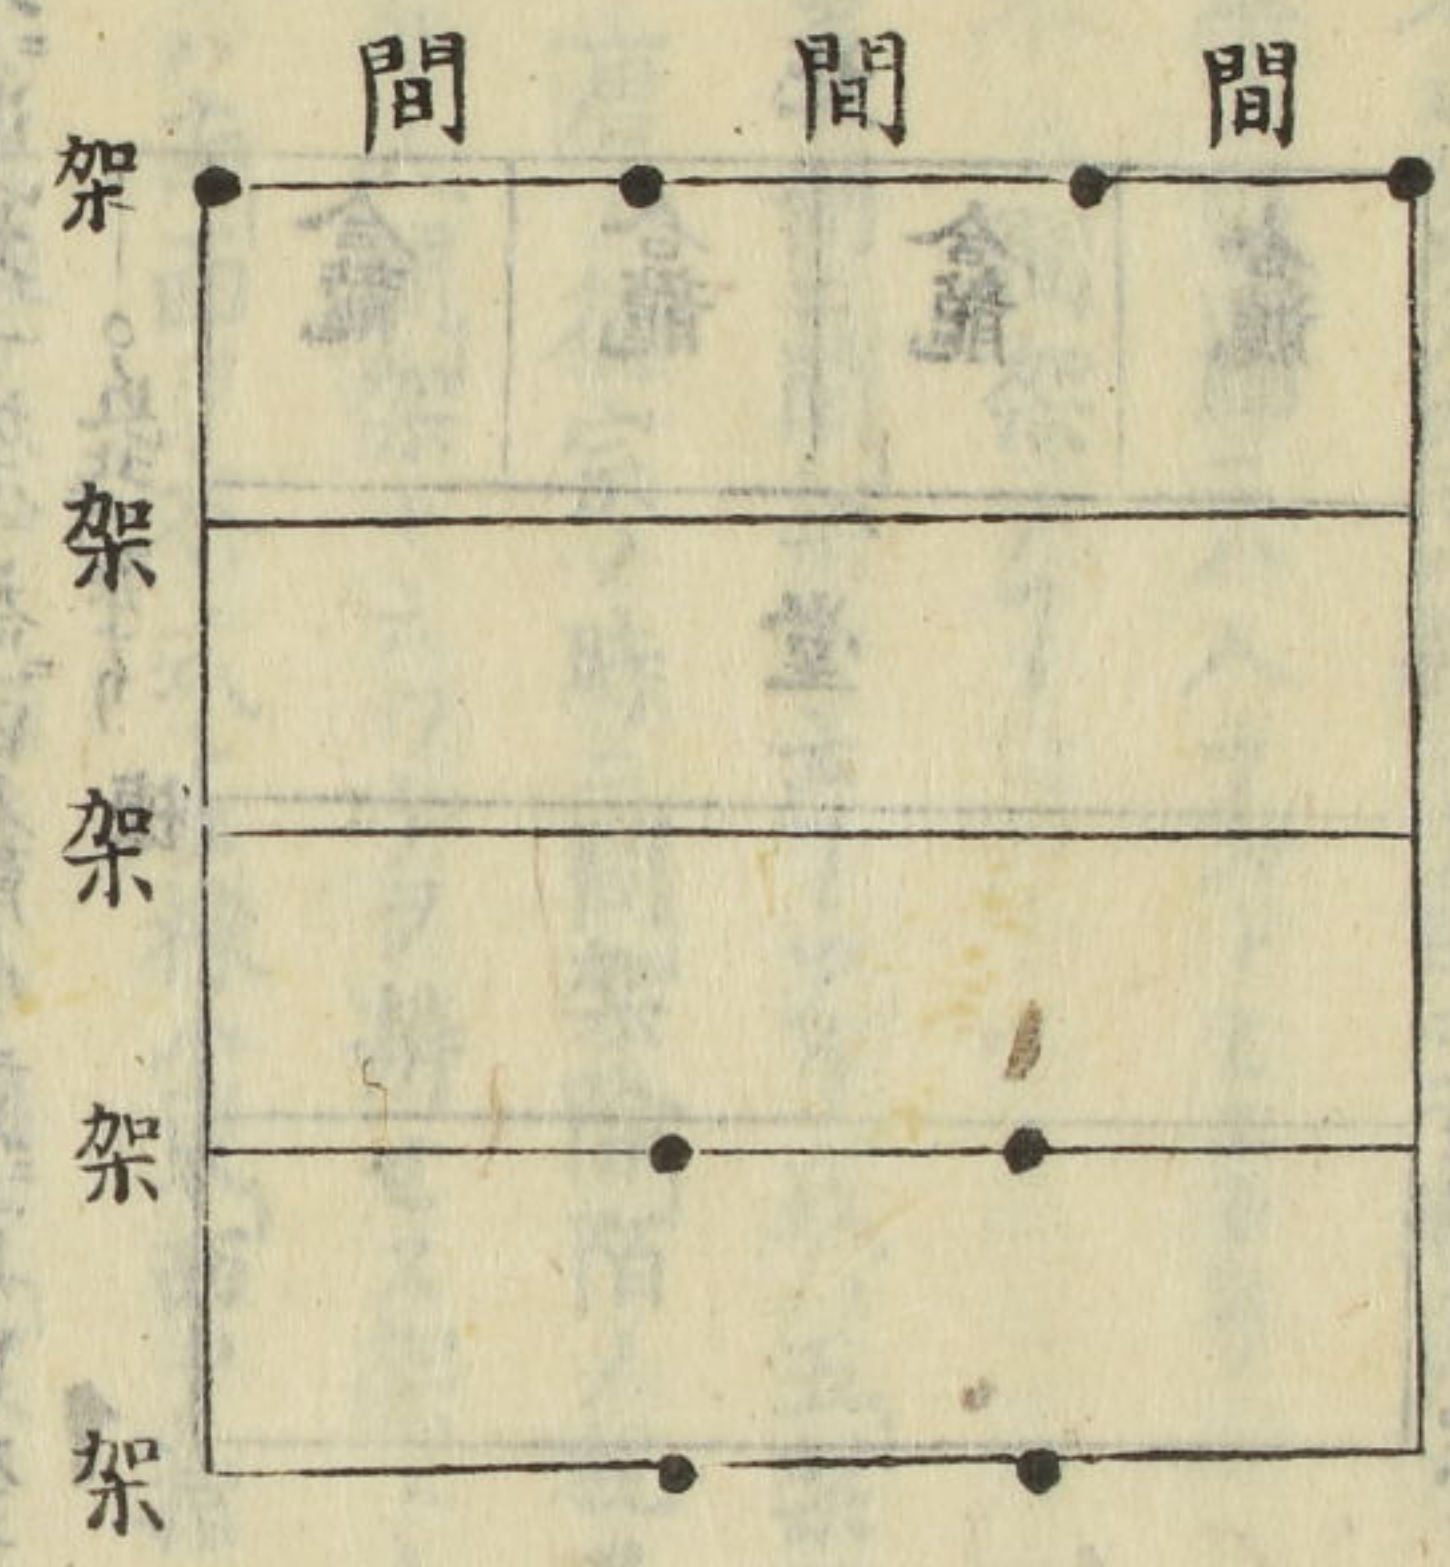 間 間 間
架
架
架
架
架